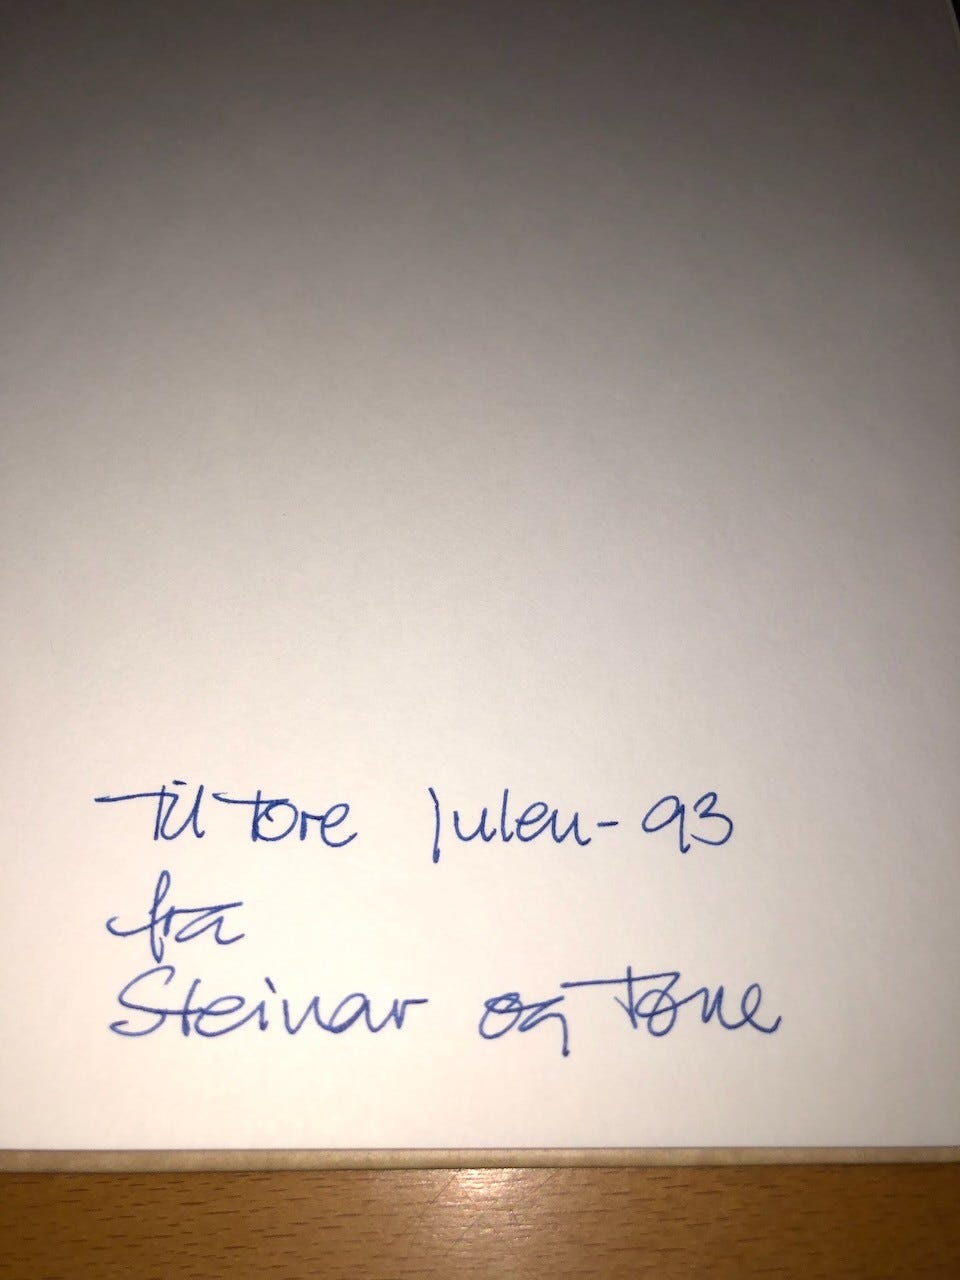 Til Tore Julen-93
fra
Steinar og Tone